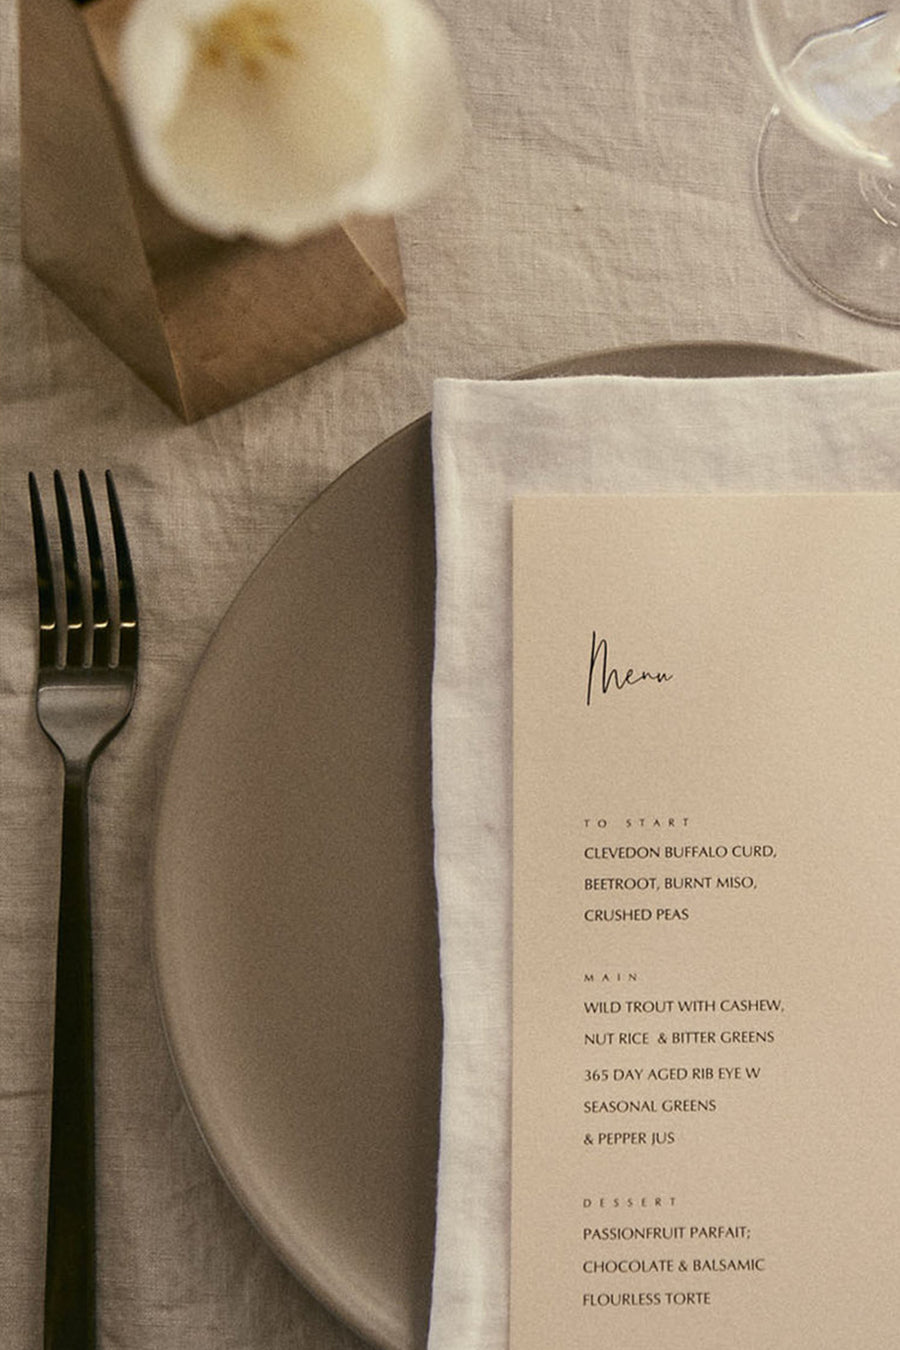 Menu
TO START
CLEVEDON BUFFALO CURD,
BEETROOT, BURNT MISO,
CRUSHED PEAS
MAIN
WILD TROUT WITH CASHEW,
NUT RICE & BITTER GREENS
365 DAY AGED RIB EYE W
SEASONAL GREENS
& PEPPER JUS
DESSERT
PASSIONFRUIT PARFAIT;
CHOCOLATE & BALSAMIC
FLOURLESS TORTE